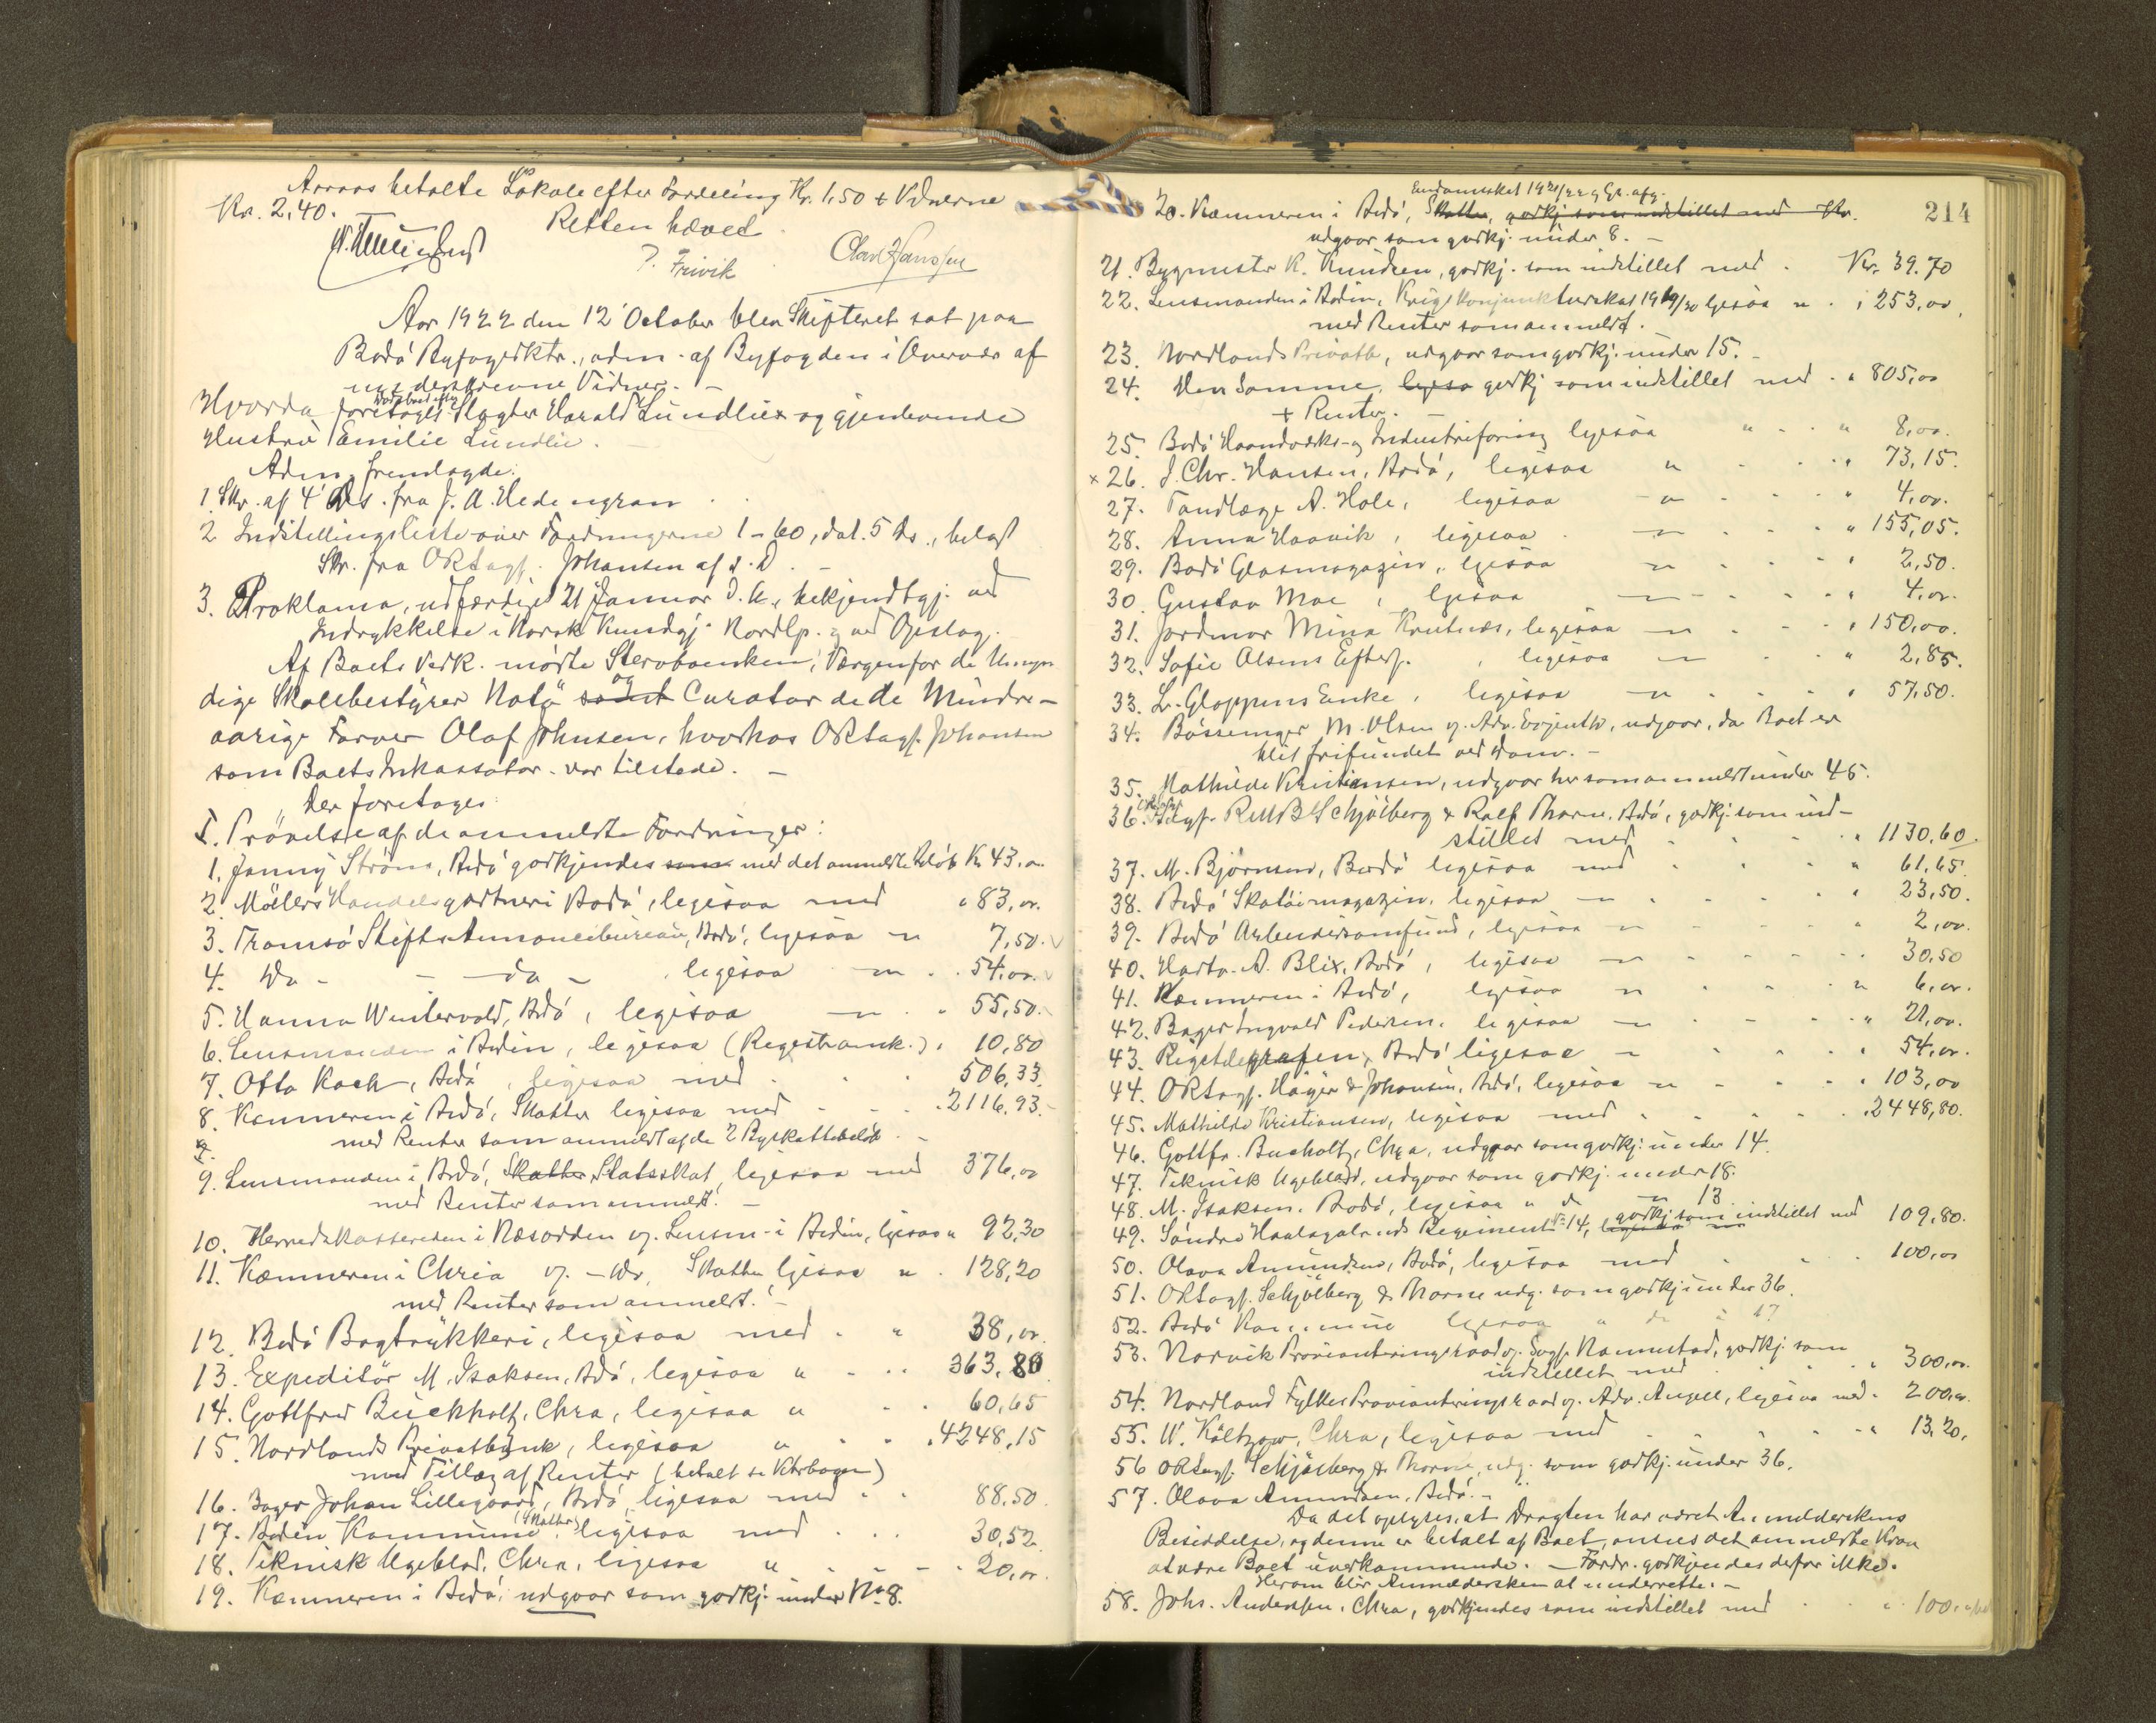 Arraas betalte Lokale efter Fordeling Kr. 1,50 + Vidnerne
Kr. 2,40.
Retten hævet
P. Frivik
Olav Hanssen
Aar 1922 den 12 October blev Skifteret sat paa
Bodö Byfogedktr., adm. af Byfogden i Overvær af
underskrevne Vidner. -
Hvorda foretoges Slagter Harald Lundlies og gjenlevende
Hustru Emilie Lundlie.
Adm. fremlagde:
1 Skr. af 4 ds. fra J. A. Hedengran
2 Indstillingsliste over Fordringerne 1-60, dat. 5 ds., belagt
Skr. fra ORsagf. Johansen af s. D. -
3. Proklama, udfærdiget 21 Januar d. A., bekjendtgj. ved
Indrykkelse i Norsk Kundgj. Nordlp. og ved Opslag.
Af Boets Vedk. mødte Stervboenken, Værgen for de Umyn
dige Skolebestyrer Natø samt og Curator de de Mindre-
aarige Farver Olaf Johnsen, hvorhos ORsagf. Johansen
som Boets Inkassator var tilstede. -
Der foretoges:
I. Prövelse af de anmeldte Fordringer:
1. Jenny Ström, Bodö godkjendes som med det anmeldte Beløb Kr 43,00
2. Möllers Handelsgartneri Bodö, ligesaa med " 83,00
3. Tromsö Stifts Annoncebureau, Bodö, ligesaa " 7,50.
4. Do - - do - ligesaa " 54,00.
5. Hanna Wintervold, Bodö, ligesaa " 55,50.
6. Lensmanden i Bodin, ligesaa (Registramk.) " 10,80
7. Otto Koch, Bodö, ligesaa med 506,33.
8. Kæmneren i Bodö, Skatter ligesaa med 2116,93.
med Renter som anmeldt af de 2 Byskattebeløb. -
9. Lensmanden i Bodö, Skatter, Statsskat, ligesaa med 376,00
med Renter som anmeldt. -
10. Herredskassereren i Næsodden v/ Lensm. i Bodin, ligesaa " 92,30
11. Kæmneren i Chria v/ - do, Skatter ligesaa " 128,20
med Renter som anmeldt. -
12. Bodö Bogtrykkeri, ligesaa med " 38,00
13. Expeditör M. Isaksen, Bdö, ligesaa " 363,80
14. Gottfred Buchholtz, Chra, ligesaa " 60,65
15. Nordlands Privatbank, ligesaa " 4248,15
med Tillæg af Renter (betalt se Kbrbogen)
16. Bager Johan Lillegaard, Bodö, ligesaa med 88,50.
17. Bodin Kommune (Skatter), ligesaa med 30,52.
18. Teknisk Ugeblad, Chra, ligesaa " 20,00.
19. Kæmneren i Bodö, udgaar som godkj. under No 8.
214
20. Kæmneren i Bodö, Skatter, godkj. som indstillet med Kr.
Eiendomsskat 1921/22 og Gr. afg.
udgaar som godkj. under 8. -
21. Bygmester K. Knudsen, godkj. som indstillet med Kr. 39.70
22. Lensmanden i Bodin, Krigskonjunkturskat 1919/20 ligesaa " 1253,00
med Renter som anmeldt.
23. Nordlands Privatb., udgaar som godkj. under 15. -
24. Den Samme, ligesa godkj som indstillet med " 805,00
+ Renter. -
25. Bodö Haandværks- og Industriforening ligesaa " " 8,00.
× 26. J. Chr. Hansen, Bodö, ligesaa " " 73,15.
27. Tandlæge A. Hole, ligesaa " " 4,00.
28. Anna Haavik, ligesaa " " 155,05.
29. Bodö Glasmagazin, ligesaa " " 2,50.
30. Gustav Moe, ligesaa " " 4,00.
31. Jordmor Mina Krutnes, ligesaa " " 150,00.
32. Sofie Olsens Efterf., ligesaa " " 2,85.
33. L. Gloppens Enke, ligesaa " " 57,50.
34. Bössemager M. Olsen v/ Adv. Evjenth, udgaar, da Boet er
blit frifundet ved Dom. -
35. Mathilde Kristiansen, udgaar her som anmeldt under 45.
36. ORsagf. Rolf B Schjölberg & Ralf Thorne, Bodö, godkj. som ind-
stillet med " 1130,60.
37. M. Björnsen, Bodö ligesaa med " 61,65.
38. Bodö Skotöimagazin, ligesaa " 23,50.
39. Bodö Arbeidersamfund, ligesaa " " 2,00.
40. Hartv. A. Blix, Bodö, ligesaa " 30,50
41. Kæmneren i Bodö, ligesaa " " 6,00.
42. Bager Ingvald Pedersen, ligesaa " " 21,00.
43. Rigstelegrafen, Bodö ligesaa " " 54,00.
44. ORsagf. Høyer & Johansen, Bodö, ligesaa " " 103,00
45. Mathilde Kristiansen, ligesaa med 2448,80.
46. Gottfr. Bucholtz, Chra, udgaar som godkj. under 14.
47. Teknisk Ugeblad, udgaar som godkj. under 18.
48. M. Isaksen, Bodö, ligesaa " d " 13
49. Söndre Haalogalands Regiment No 14, ligesaa godkj som indstillet med 109,80.
50. Olava Amundsen, Bodö, ligesaa med 100,00
51. ORsagf. Schjölberg & Thorne udg. som godkj under 36.
52. Bodö Kommune ligesaa " do " 17
53. Narvik Provianteringsraad v/ Sagf. Ramstad, godkj. som
indstillet med " 300,00.
54. Nordland Fylkes Provianteringsraad v/ Adv. Angell, ligesaa med 200,00.
55. W. Költzow, Chra, ligesaa med " 13,20.
56 ORsagf. Schjölberg & Thorne, udg. som godkj. under 36.
57. Olava Amundsen, Bodö. -
Da det oplyses, at Dragten har været Anmelderskens
Besiddelse, og denne er betalt af Boet, ansees det anmeldte Krav
at være Boet uvedkommende. - Fordr. godkjendes derfor ikke.
Herom blir Anmeldersken at underrette. -
58. Johs. Anderssen, Chra, godkjendes som indstillet med " 100,